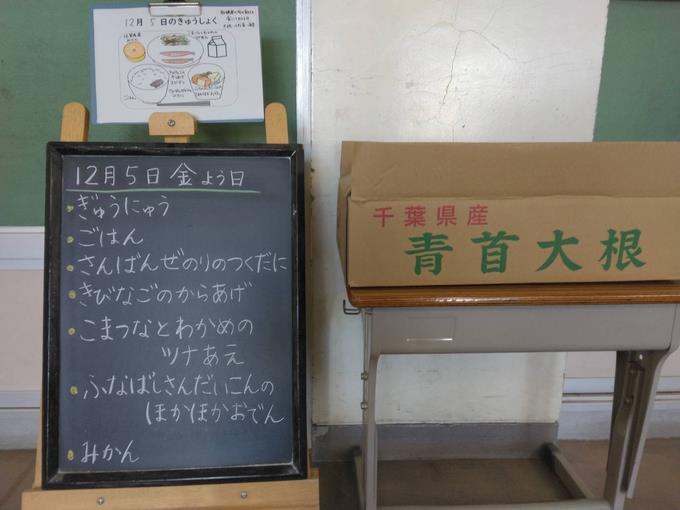 12月5日のきゅうしょく
12月5日金よう日
ぎゅうにゅう
ごはん
さんばんぜのりのつくだに
きびなごのからあげ
こまつなとわかめの
ツナあえ
ふなばしさんだいこんの
ほかほかおでん
みかん
千葉県産
青首大根